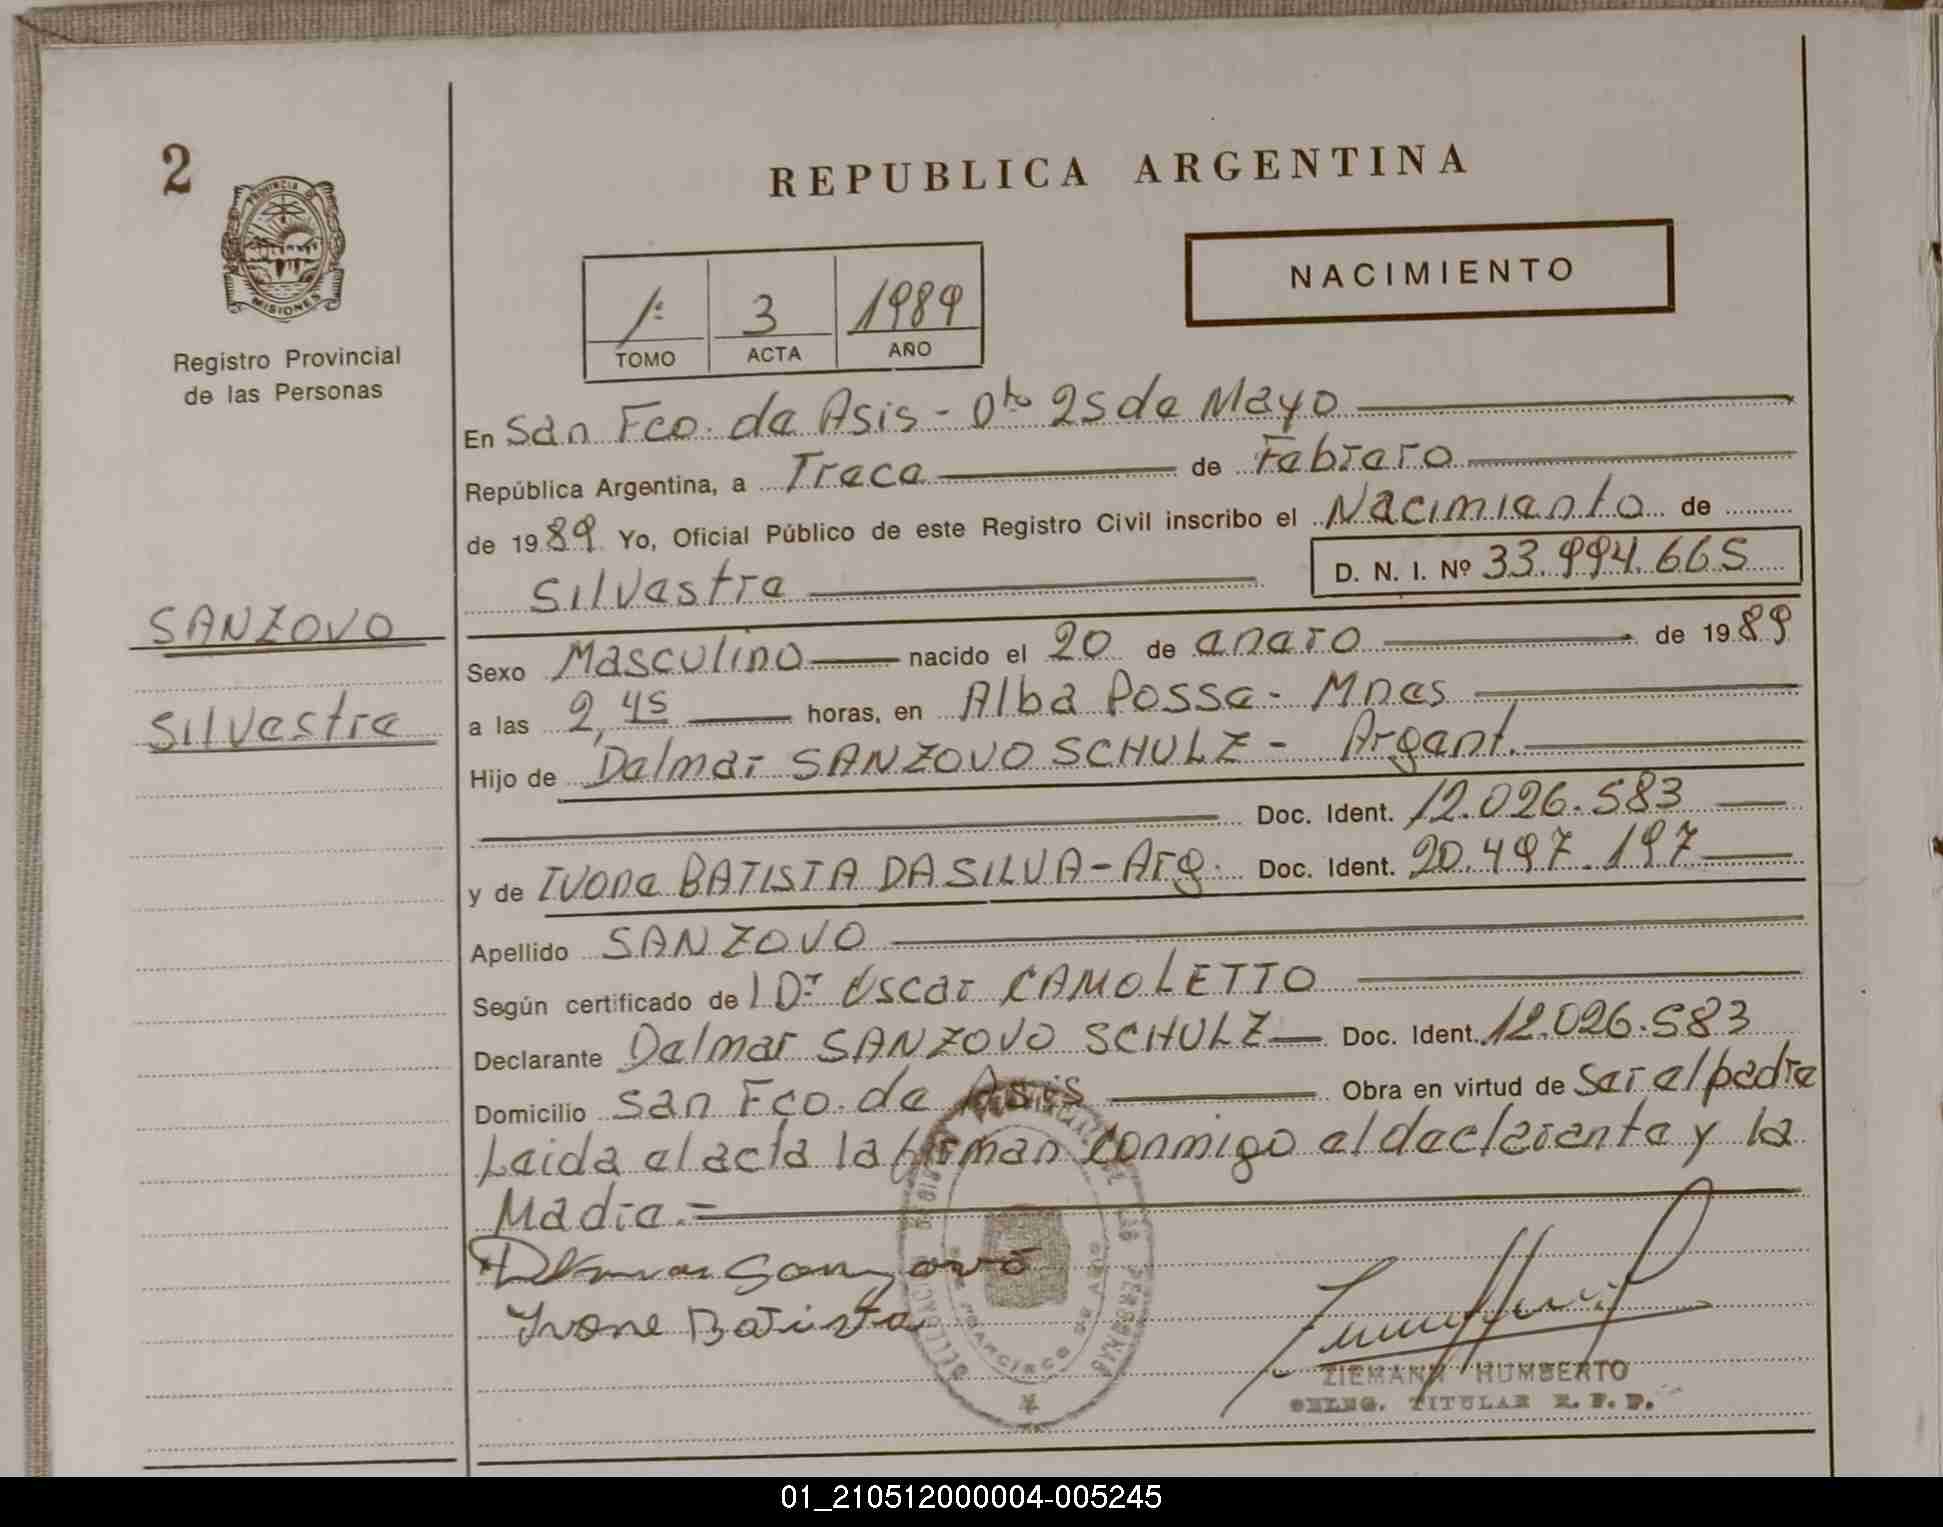 2
PROVINCIA DE
MISIONES
Registro Provincial
de las Personas
SANZOVO
Silvestre
REPUBLICA ARGENTINA
NACIMIENTO
1º 3 1989
TOMO ACTA AÑO
En San Fco. de Asis - Dto 25 de Mayo
República Argentina, a Trece de Febrero
de 1989 Yo, Oficial Público de este Registro Civil inscribo el Nacimiento de
Silvestre D. N. I. Nº 33.994.665
Sexo Masculino nacido el 20 de enero de 1989
a las 2,45 horas, en Alba Posse - Mnes
Hijo de Delmar SANZOVO SCHULZ - Argent.
Doc. Ident. 12.026.583
y de Ivone BATISTA DA SILVA - Arg. Doc. Ident. 20.497.197
Apellido SANZOVO
Según certificado de l Dr Oscar CAMOLETTO
Declarante Delmar SANZOVO SCHULZ Doc. Ident. 12.026.583
Domicilio San Fco. de Asis Obra en virtud de Ser el padre
Leida el acta la firman conmigo el declarante y la
Madre.=
Delmar Sanzovo
Ivone Batista
ZIEMANN HUMBERTO
DELEG. TITULAR R. P. P.
01_210512000004-005245